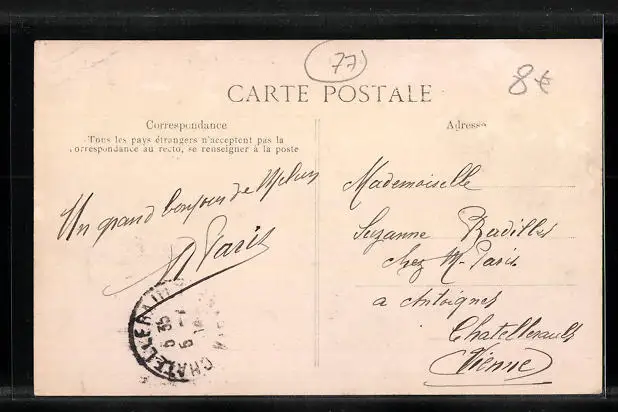 77
8€
CARTE POSTALE
Correspondance
Tous les pays étrangers n'acceptent pas la
correspondance au recto, se renseigner à la poste
Adresse
Un grand bonjour de Melun
A Paris
Mademoiselle
Suzanne Radilles
chez M. Paris
a Antoigner
Chatellerault
Vienne
CHATELLERAULT
5 35